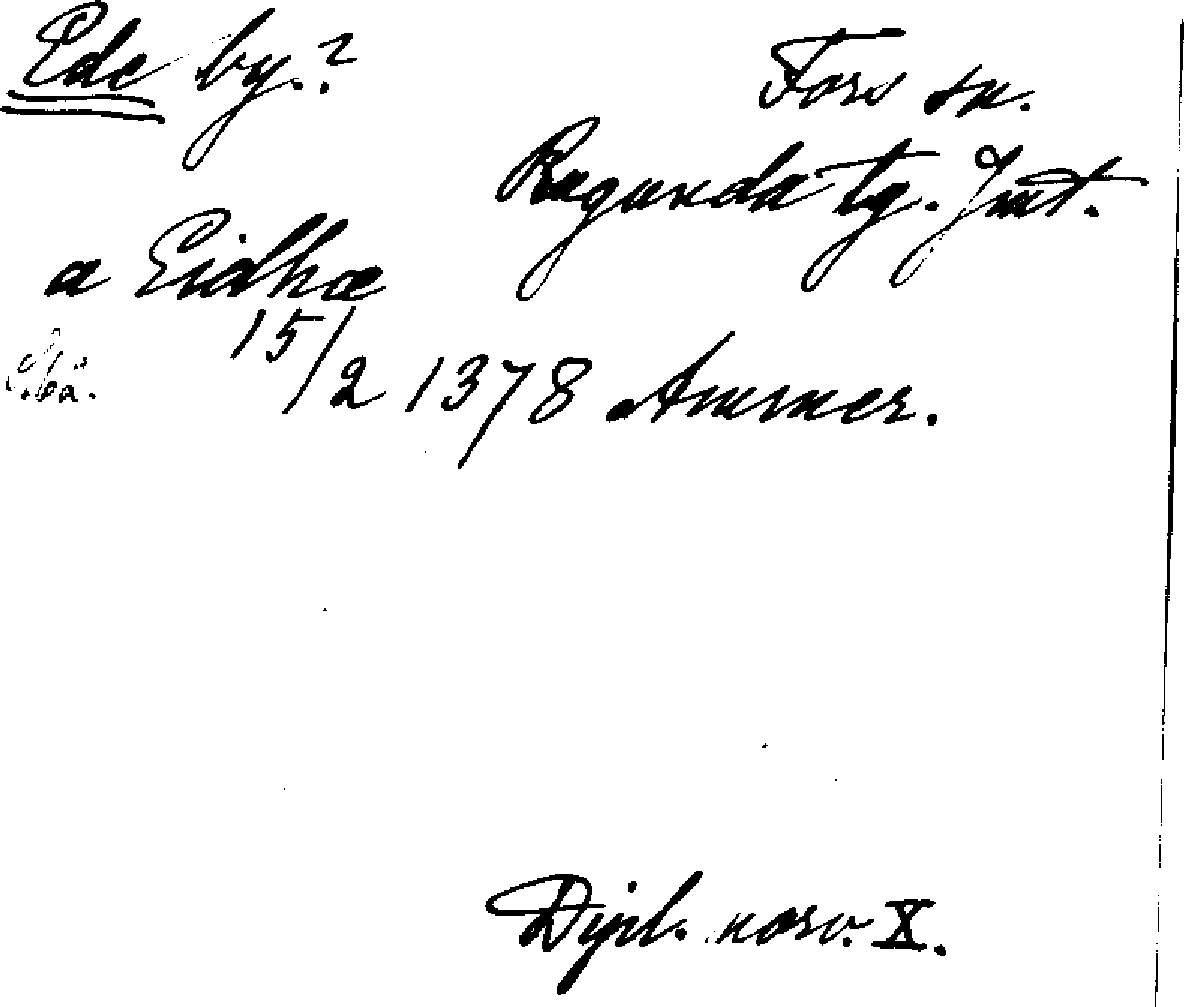 Ede by.?
Fors sn.
Ragunda tg. Jmt.
a Eidhœ
15/2 1378 Ammer.
Dipl. norv. X.